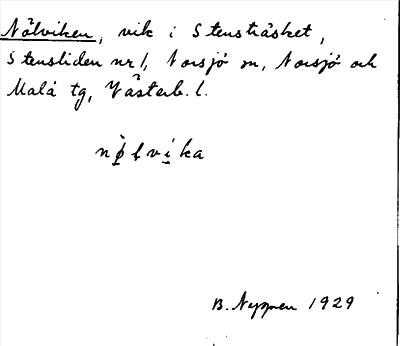 Nålviken, vik i Stensträsket,
Stensliden nr 1, Norsjö sn, Norsjö och
Malå tg, Västerb. l.
nø̣̀lvi̠ka
B. Nyman 1929